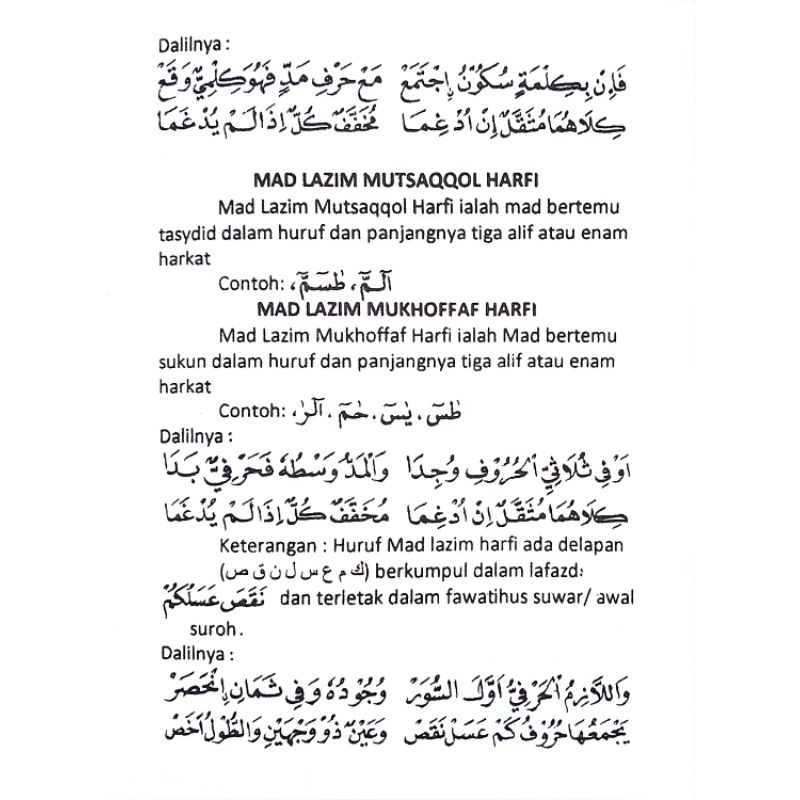 Dalilnya :
فَاِنْ بِكِلْمَةٍ سُكُوْنٌ اِجْتَمَعْ مَعْ حَرْفِ مَدٍّ فَهُوَ كِلْمِيٌّ وَقَعْ
كِلَاهُمَا مُثَقَّلٌ اِنْ اُدْغِمَا مُخَفَّفٌ كُلٌّ اِذَا لَمْ يُدْغَمَا
MAD LAZIM MUTSAQQOL HARFI
Mad Lazim Mutsaqqol Harfi ialah mad bertemu
tasydid dalam huruf dan panjangnya tiga alif atau enam
harkat
Contoh: آلٓمّٓ، طٰسٓمّٓ،
MAD LAZIM MUKHOFFAF HARFI
Mad Lazim Mukhoffaf Harfi ialah Mad bertemu
sukun dalam huruf dan panjangnya tiga alif atau enam
harkat
Contoh: طٰسٓ . يٰسٓ . حٰمٓ . آلٓرٰ،
Dalilnya :
اَوْ فِى ثُلَاثِيِّ الْحُرُوْفِ وُجِدَا وَالْمَدُّ وَسْطُهُ فَحَرْفِيٌّ بَدَا
كِلَاهُمَا مُثَقَّلٌ اِنْ اُدْغِمَا مُخَفَّفٌ كُلٌّ اِذَا لَمْ يُدْغَمَا
Keterangan : Huruf Mad lazim harfi ada delapan
(ك م ع س ل ن ق ص) berkumpul dalam lafazd:
نَقَصَ عَسَلُكُمْ dan terletak dalam fawatihus suwar/ awal
suroh.
Dalilnya :
وَاللَّازِمُ الْحَرْفِيُّ اَوَّلَ السُّوَرْ وُجُوْدُهُ وَفِى ثَمَانٍ اِنْحَصَرْ
يَجْمَعُهَا حُرُوْفُ كَمْ عَسَلْ نَقَصْ وَعَيْنٌ ذُوْ وَجْهَيْنِ وَالطُّوْلُ اَخَصْ